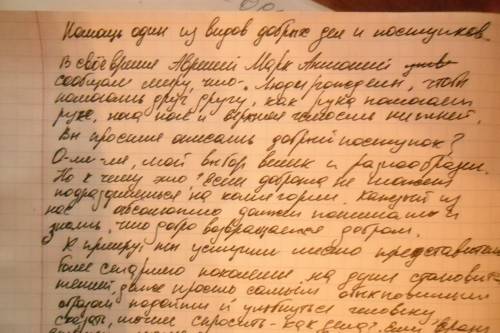 Помощь один из видов добрых дел и поступков.
В своё время Аврелий Марк Антоний
сообщил миру, что „Люди рождены, чтобы
помогать друг другу, как рука помогает
руке, нога ноге и верхняя челюсть нижней.
Вы просите описать добрый поступок?
О-ля-ля, мой выбор велик и разнообразен.
Но к чему это, если доброта не может
подразделяться на категории. Каждый из
нас абсолютно должен понимать и
знать, что добро возвращается добром.
К примеру, мы уступим место представителю
более старшего поколения на душе становится
теплей, даже просто самым обыкновенным
образом подойти и улыбнуться человеку
сказать, точнее спросить - как дела?,